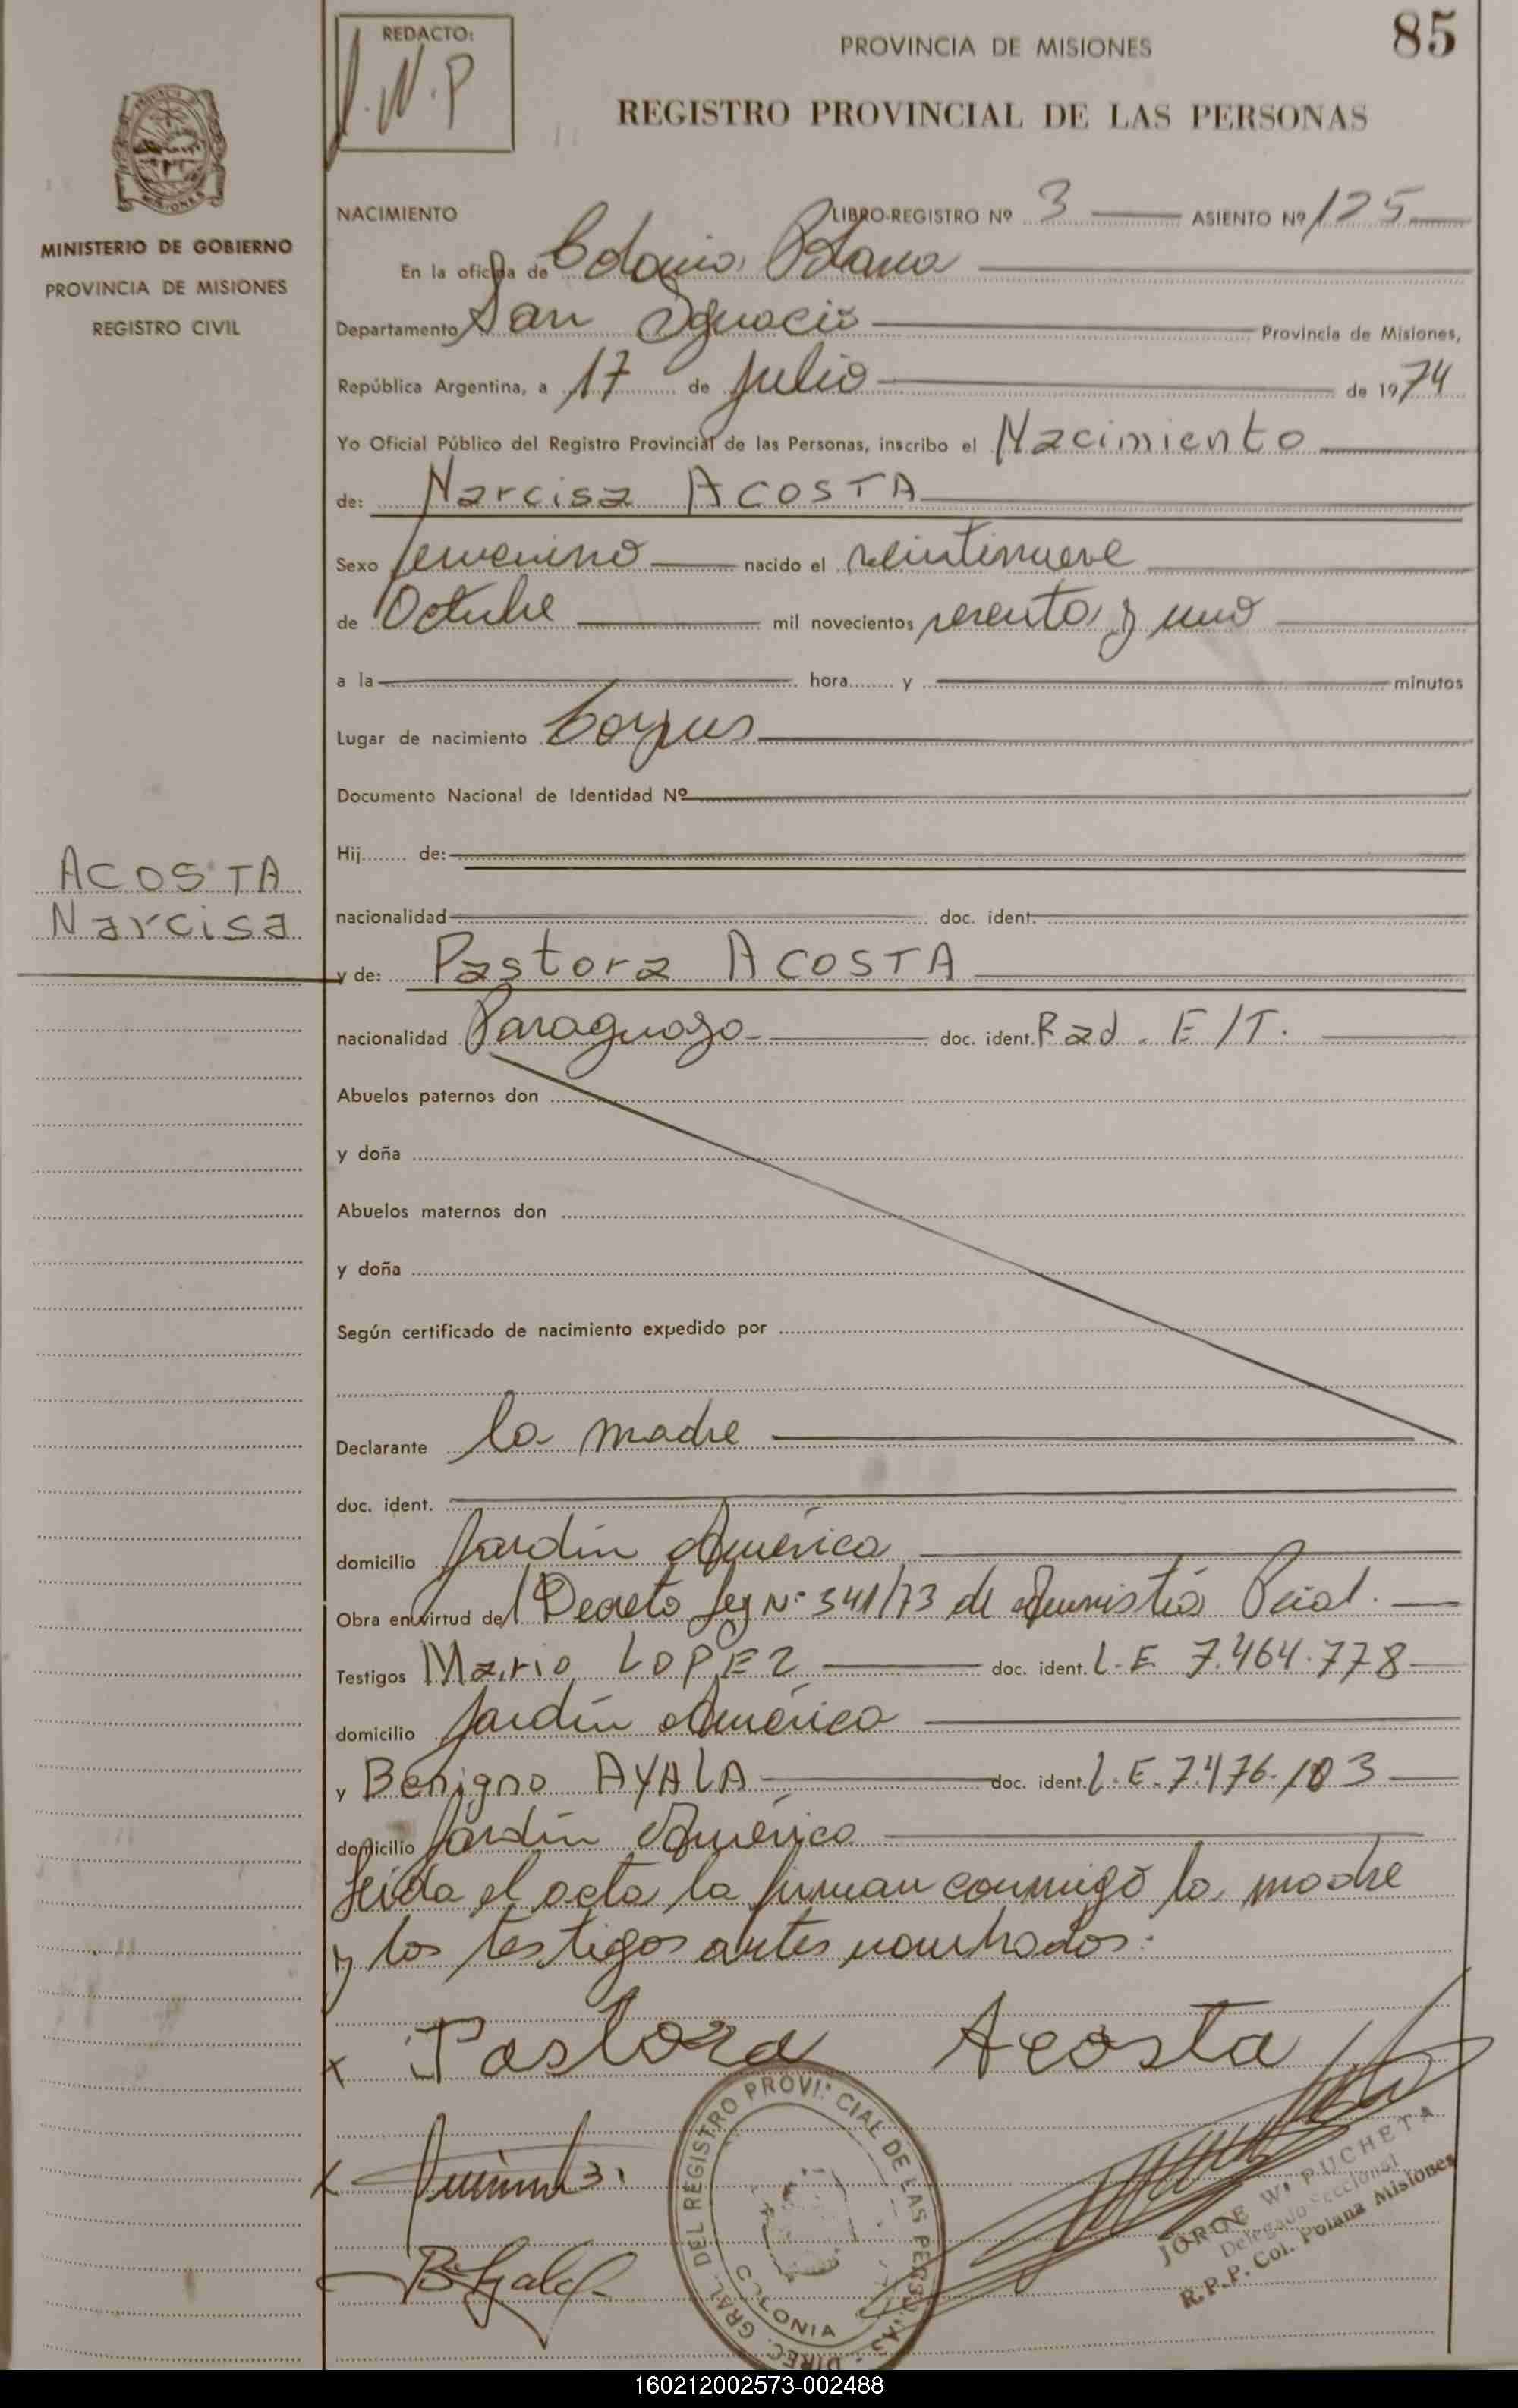 REDACTO:
J.N.P
PROVINCIA DE MISIONES
85
REGISTRO PROVINCIAL DE LAS PERSONAS
MISIONES
MINISTERIO DE GOBIERNO
PROVINCIA DE MISIONES
REGISTRO CIVIL
NACIMIENTO LIBRO-REGISTRO Nº 3 ASIENTO Nº 125
En la oficina de Colonia Polana
Departamento San Ignacio Provincia de Misiones,
República Argentina, a 17 de Julio de 1974
Yo Oficial Público del Registro Provincial de las Personas, inscribo el Nacimiento
de: Narcisa ACOSTA
Sexo femenino nacido el veintinueve
de Octubre mil novecientos sesenta y uno
a la hora y minutos
Lugar de nacimiento Corpus
Documento Nacional de Identidad Nº
Hij de:
ACOSTA
Narcisa
nacionalidad doc. ident.
y de: Pastora ACOSTA
nacionalidad Paraguaya doc. ident. Rad. E/T.
Abuelos paternos don
y doña
Abuelos maternos don
y doña
Según certificado de nacimiento expedido por
Declarante la madre
doc. ident.
domicilio Jardín América
Obra en virtud del Decreto Ley Nº 341/73 de Amnistía Pcial.
Testigos Mario LOPEZ doc. ident. L.E 7.464.778
domicilio Jardín América
y Benigno AYALA doc. ident. L.E. 7.476.103
domicilio Jardín América
Leída el acta la firman conmigo la madre
y los testigos antes nombrados:
x Pastora Acosta
DIREC. GRAL. DEL REGISTRO PROVINCIAL DE LAS PERSONAS
COLONIA
JORGE W. PUCHETA
Delegado Seccional
R.P.P. Col. Polana Misiones
160212002573-002488